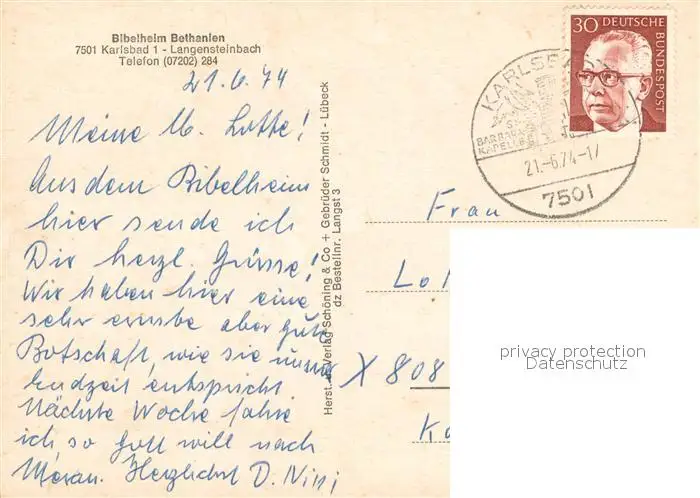 Bibelheim Bethanien
7501 Karlsbad 1 - Langensteinbach
Telefon (07202) 284
21.6.74
Meine lb. Lotte!
Aus dem Bibelheim
hier sende ich
Dir herzl. Grüsse!
Wir haben hier eine
sehr ernste aber gute
Botschaft, wie sie unsrer
Endzeit entspricht
Nächste Woche fahre
ich so Gott will nach
Meran. Herzlichst D. Nini
Herst. u. Verlag Schöning & Co + Gebrüder Schmidt - Lübeck
dz Bestellnr. Langst 3
30 DEUTSCHE
BUNDESPOST
KARLSBAD
ST.
BARBARA
KAPELLE
21.-6.74-17
7501
Frau
Lo
X 808
privacy protection
Datenschutz